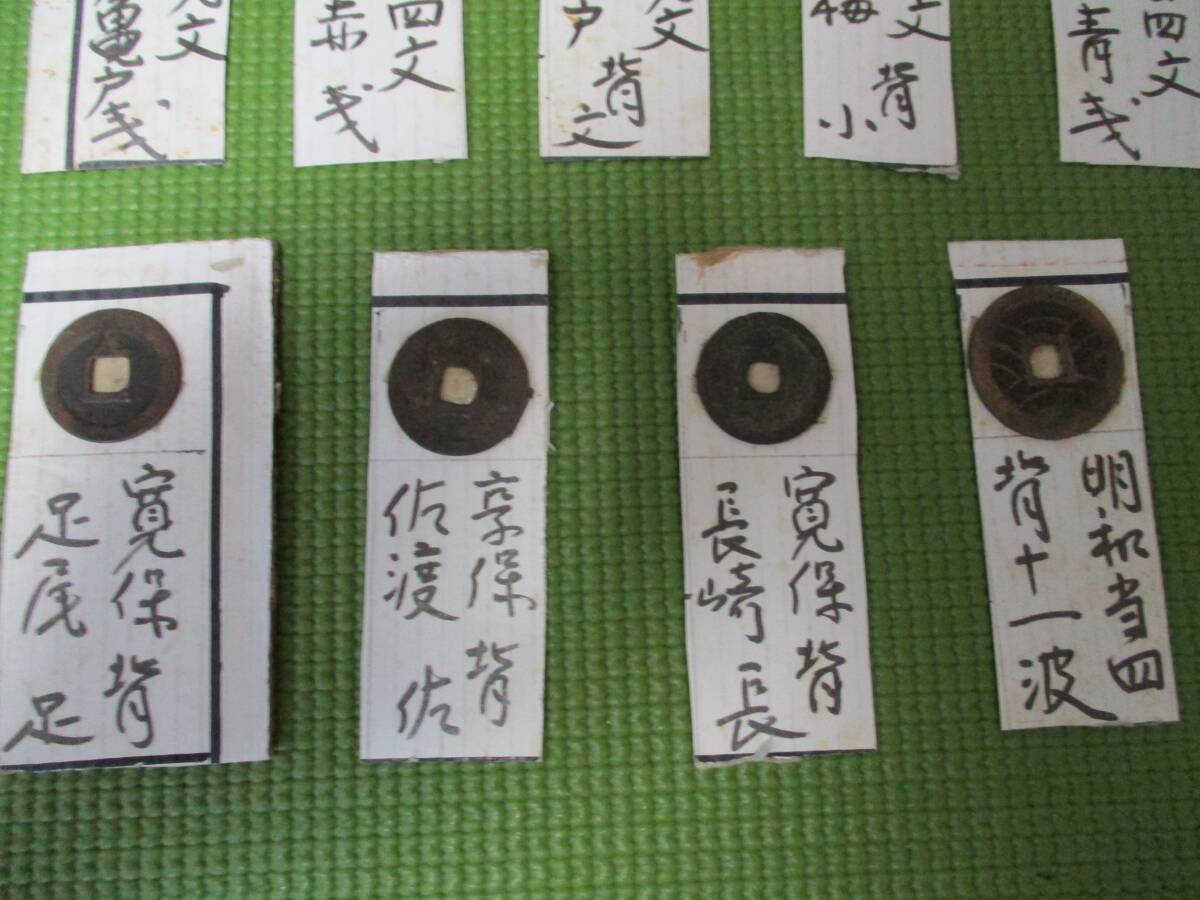 文
亀戸銭
四文
赤銭
文背
戸
文
文背
小
四文
青銭
寛保背
足尾 足
享保背
佐渡 佐
寛保背
長崎 長
明和当四
背十一波